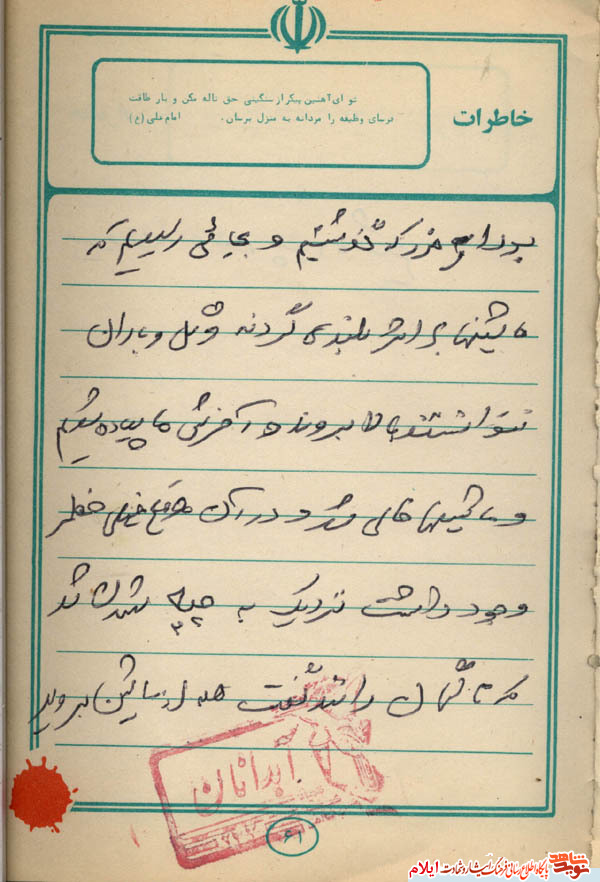 خاطرات
تو ای آهنین پیکر از سنگینی حق ناله مکن و بار طاقت
فرسای وظیفه را مردانه به منزل برسان. امام علی (ع)
بود از مرز که گذشتیم و بجائی رسیدیم که
ماشینها بر اثر بلندی گردنه و گل و باران
نتوانستند بالا بروند و آخرش ما پیاده شدیم
و ماشینها خالی شد و در آن موقع خیلی خطر
وجود داشت نزدیک به چپه شدن شد
که ناگهان راننده گفت همه از ماشین بروید
آبدانان
۶۱
نوید شاهد
پایگاه اطلاع رسانی فرهنگ ایثار و شهادت ایلام